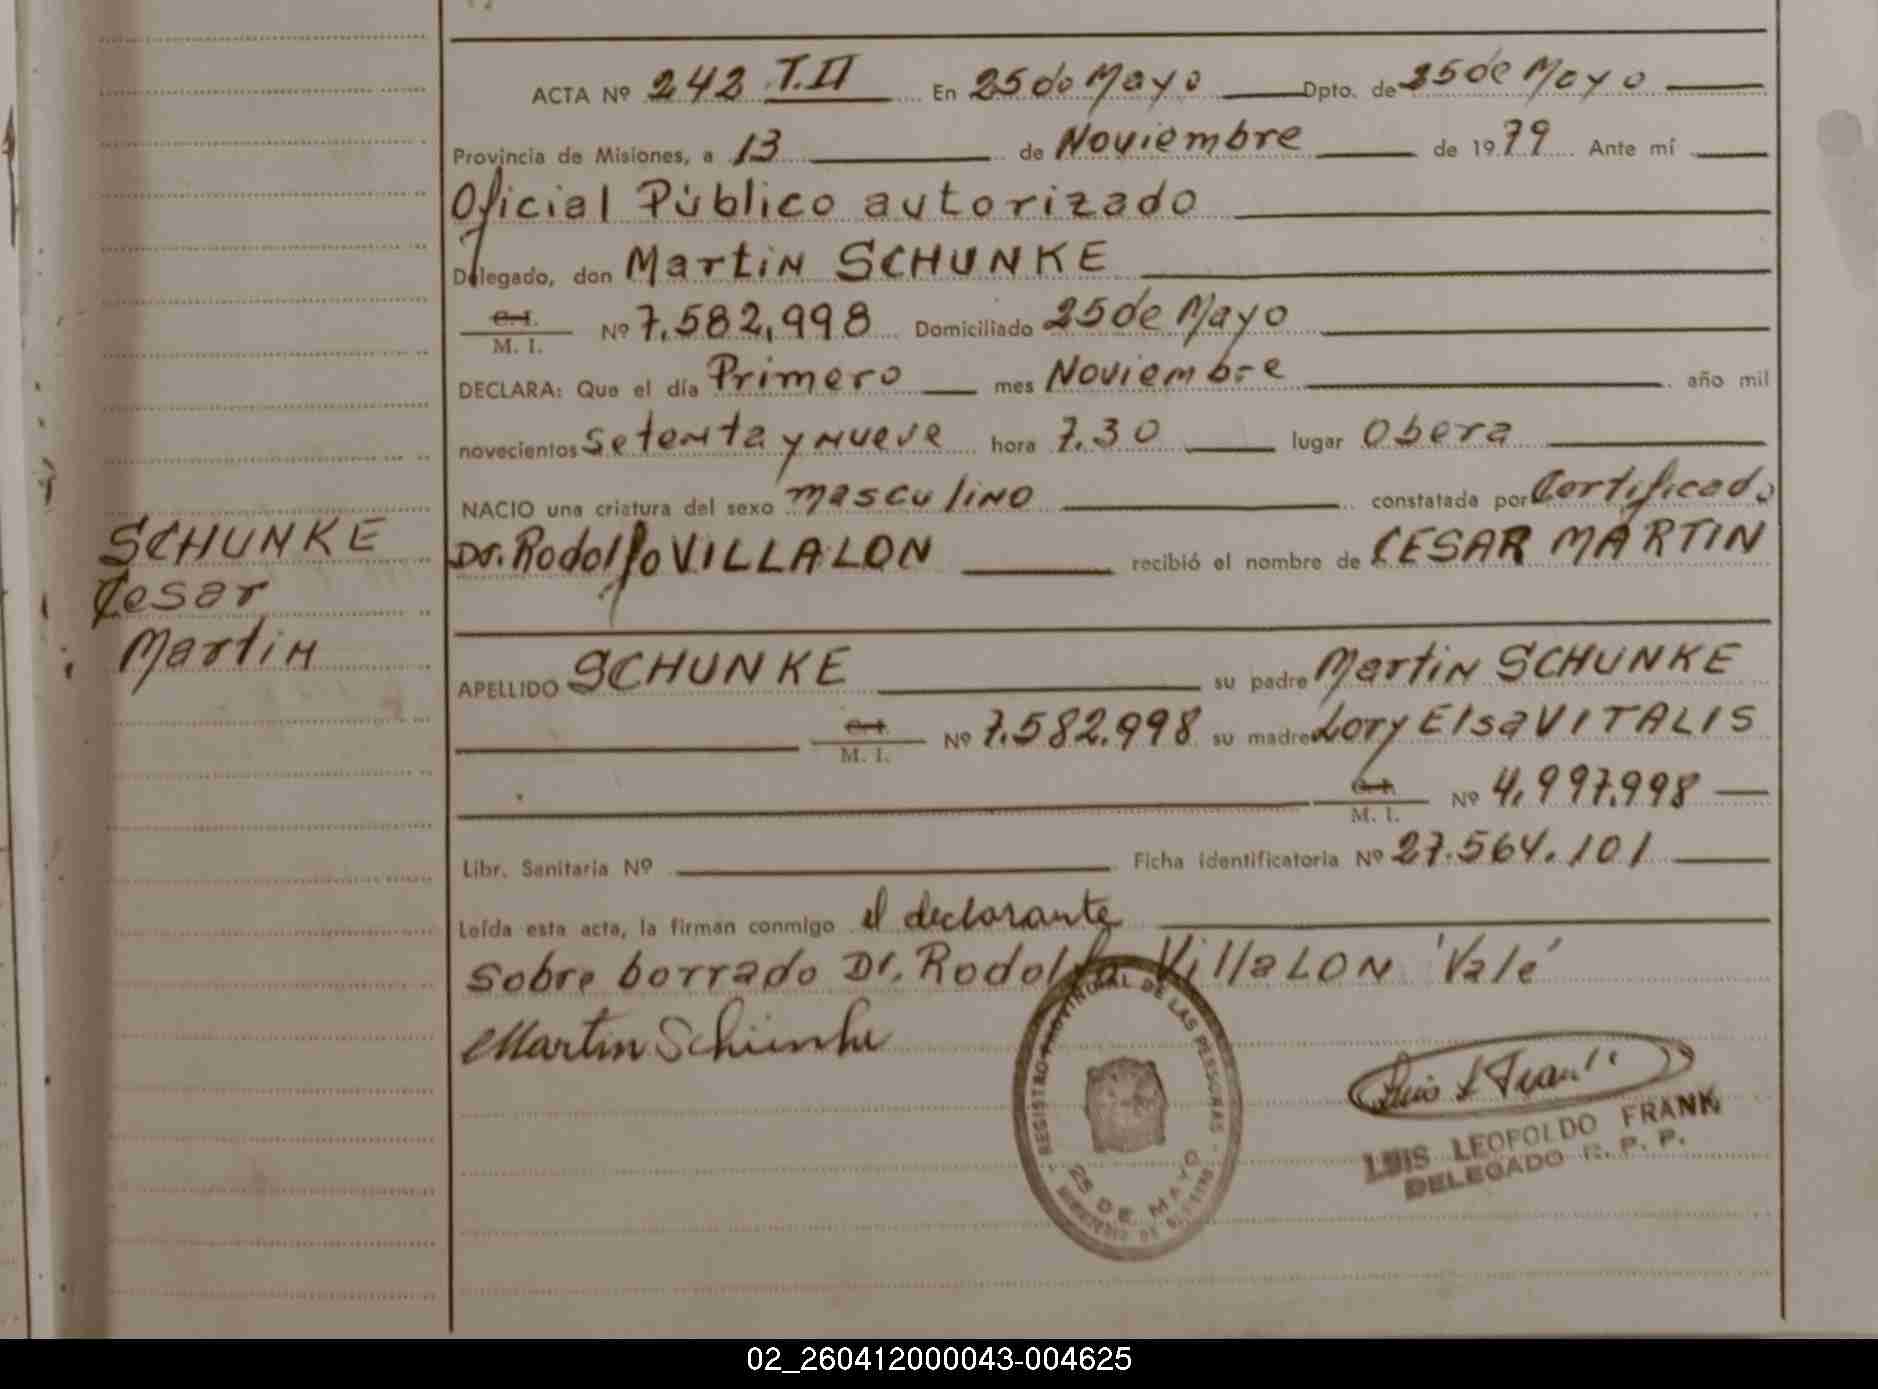 ACTA Nº 242 T.II En 25 de Mayo Dpto. de 25 de Mayo
Provincia de Misiones, a 13 de Noviembre de 1979 Ante mí
Oficial Público autorizado
Delegado, don Martin SCHUNKE
C. I. M. I. Nº 7.582,998 Domiciliado 25 de Mayo
DECLARA: Que el día Primero mes Noviembre año mil
novecientos setenta y nueve hora 7.30 lugar Obera
NACIO una criatura del sexo masculino constatada por Certificado
Dr. Rodolfo VILLALON recibió el nombre de CESAR MARTIN
SCHUNKE
Cesar
Martin
APELLIDO SCHUNKE su padre Martin SCHUNKE
C. I. M. I. Nº 7.582.998 su madre Lory Elsa VITALIS
C. I. M. I. Nº 4,997.998
Libr. Sanitaria Nº Ficha identificatoria Nº 27.564.101
Leída esta acta, la firman conmigo el declarante
Sobre borrado Dr. Rodolfo VillaLON 'Vale'
Martin Schünke
REGISTRO PROVINCIAL DE LAS PERSONAS
25 DE MAYO
MINISTERIO DE
Luis L Frank
LUIS LEOPOLDO FRANK
DELEGADO R. P. P.
02_260412000043-004625